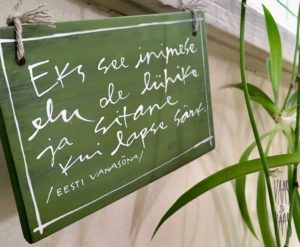 Eks see inimese
elu ole lühike
ja sitane
kui lapse särk.
/EESTI VANASÕNA/